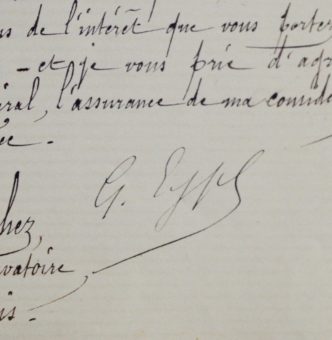 us de l'intérêt que vous porter
- et je vous prie d'agr
iral, l'assurance de ma conside
ée.
G.
chez,
rvatoire,
is.